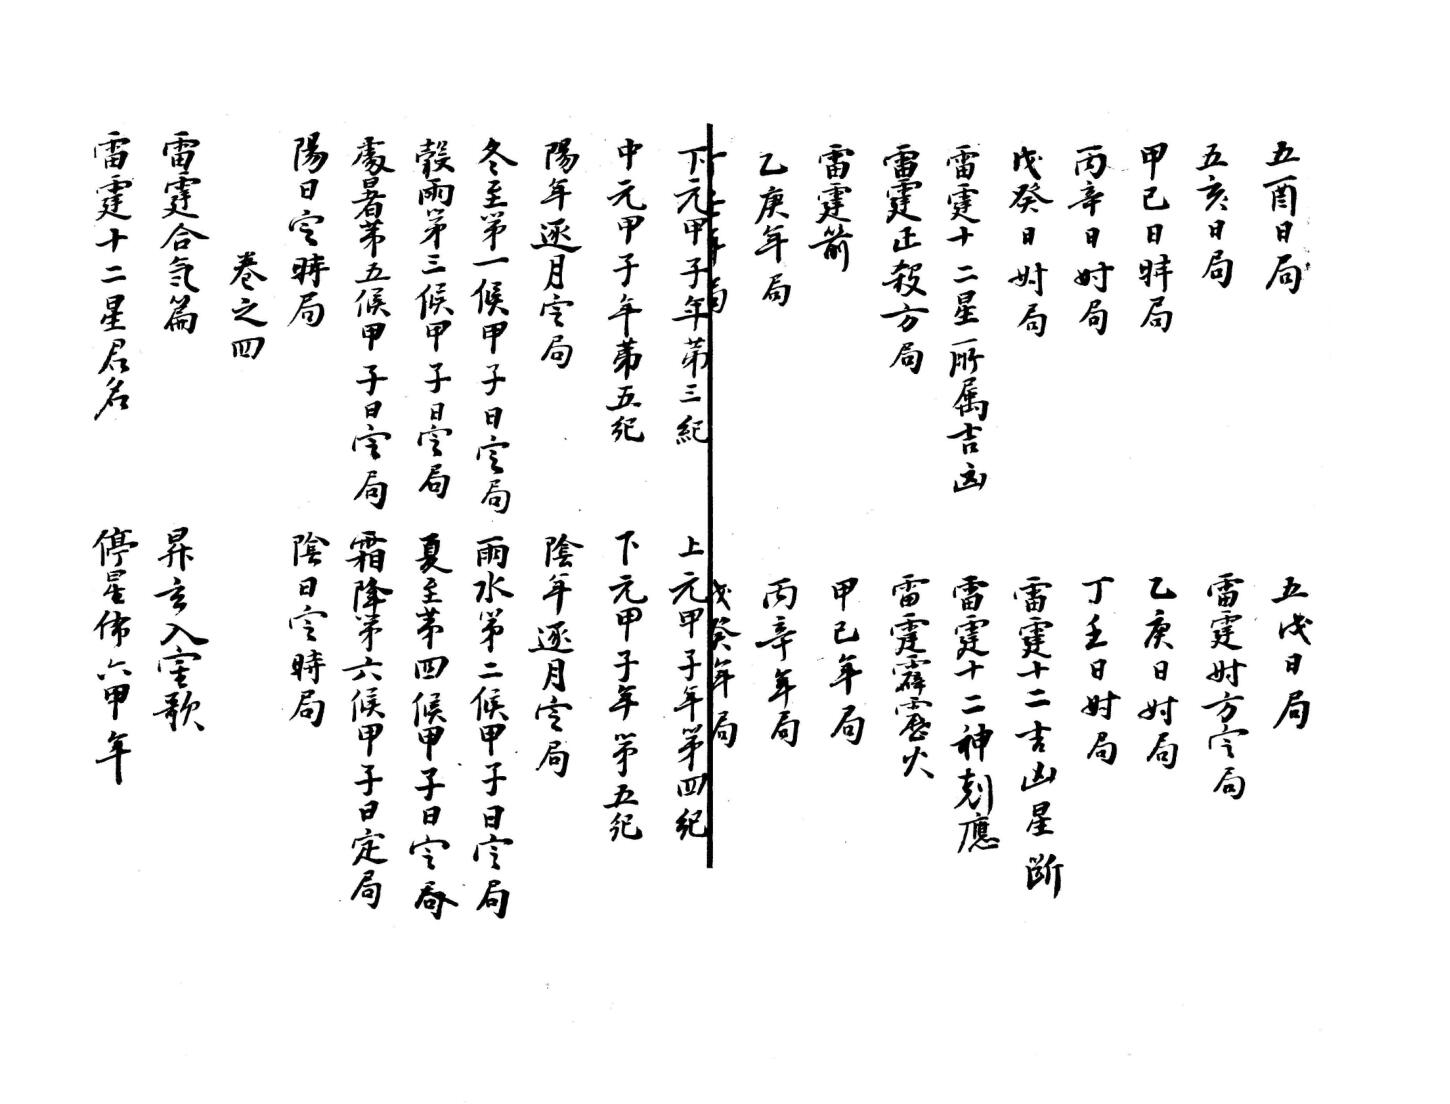 五酉日局
五戌日局
五亥日局
雷霆时方定局
甲己日時局
乙庚日时局
丙辛日时局
丁壬日时局
戊癸日时局
雷霆十二吉凶星断
雷霆十二星所属吉凶
雷霆十二神剋應
雷霆正殺方局
雷霆霹靂火
雷霆箭
甲己年局
乙庚年局
丙辛年局
年局
戊癸年局
下元甲子年第三紀
上元甲子年第四紀
中元甲子年第五紀
下元甲子年第五紀
陽年逐月定局
陰年逐月定局
冬至第一候甲子日定局
雨水第二候甲子日定局
穀雨第三候甲子日定局
夏至第四候甲子日定局
處暑第五候甲子日定局
霜降第六候甲子日定局
陽日定時局
陰日定時局
卷之四
雷霆合氣篇
昇玄入室歌
雷霆十二星君名
停星佈六甲年